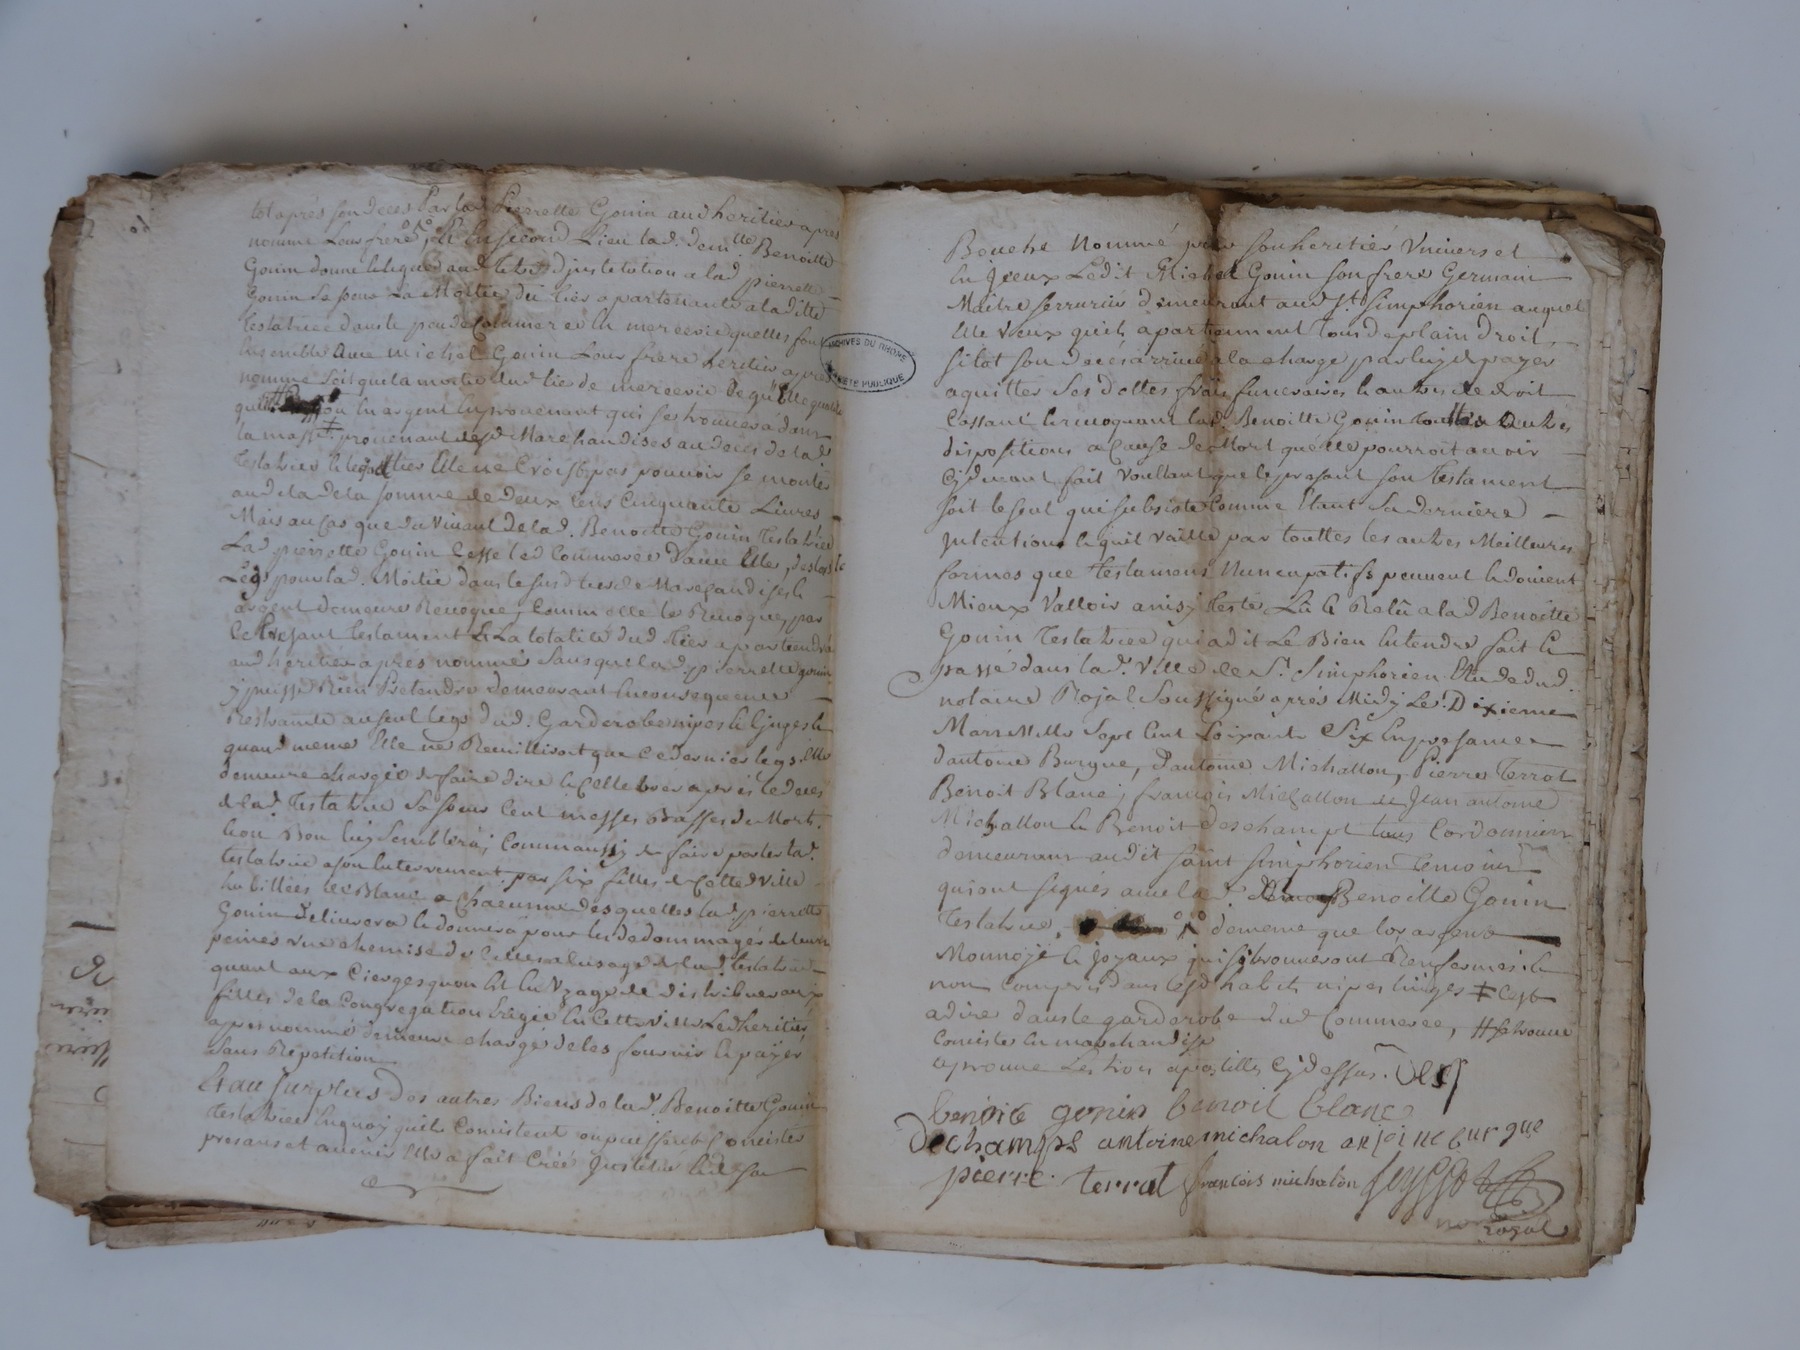 tot aprés son deces Par lad Pierrette Gonin aud heritier apres
nommé Leur frere, Et En second Lieu lad. dem.lle Benoitte
Gonin donne Et legue aud titre d'justitution a lad pierrette
Gonin Sa seur La Moitié du tier apartenant a ladite
testatrice dans le peu de Commerce En mercerie quelles font
Ensemble Avec michel Gonin Leur frere heritier aprés
nommé Soit que la moitié dud tier de mercerie
ou En argent En provenant qui se trouvera dans
la masse provenant desd Marchandises au deces de lad
Testatrice lequel tier Elle ne Croist pas pouvoir se monter
audela de la somme de deux Cens Cinquante Livres
Mais au Cas que du Vivant de lad. Benoitte Gonin testatrice
Lad pierrette Gonin Cesse led Commerce Avec Elle, des lors le
Legs pour lad. Moitié dans le susd tier de Marchandises Et
argent demeure Revoqué, Comme elle le Revoque par
le Present testament Et La totalité dud tier apartiendra
aud heritier aprés nommé Sans que lad. pierrette gonin
y puisse Rien Pretendre demeurant En consequence
Restrainte au seul legs dud. Garderobe nipes Et Linges Et
quand meme Elle ne Recuilliroit que Ce dernier legs Elle
demeure chargée de faire dire Et Cellebrer aprés le deces
de lad. Testatrice Sa soeur Cent messes Basses de Morts.
Et ou Bon luy Semblera; Comm'aussy de faire porter lad.
testatrice a son Enterrement par six filles de Cette Ville
habillées de Blanc a Chacune desquelles lad. pierrette
Gonin delivrera Et donnera pour les dedommager de leurs
peines une chemise de Celles a l'usage de lad. Testatrice
quant aux Cierges qu'on Est En Uzage de distribuer aux
filles de la Congregation Erigée En Cette Ville Led heritier
aprés nommé demeure chargé de les fournir Et payer
sans Repetition
Et au Surplus des autres Biens de lad. Benoitte Gonin
testatrice En quoy quils Consistent ou puissent Consister
presans et avenir Elle a fait Créé Institué Et de sa
Bouche Nommé pour son heritier Universel
En Jceux Ledit Michel Gonin son frere Germain
Maitre serrurier demeurant aud St. Simphorien auquel
Elle Veux qu'ils apartiennent tous de plain droit,
sitot son decés arrivé a la charge par luy de payer
aquitter Ses dettes frais funeraires Et autres de droit
Cassant Et revoquant lad. Benoitte Gonin touttes autres
dispositions a Cause de Mort quelle pourroit avoir
Cydevant fait Voullant que le present son Testament
soit le seul qui subsiste Comme Etant Sa derniere
Jntention Et quil vaille par touttes les autres Meilleures
formes que testamens Nuncupatifs peuvent Et doivent
Mieux Valloir ainsi testé Lû Et Relû a lad Benoitte
Gonin Testatrice qui a dit Le Bien Entendre fait Et
passé dans lad. Ville de St. Simphorien Etude dud.
notaire Royal Soussigné aprés Midy Le Dixieme
Mars Mille Sept Cent Soixante Six En presance
d'antoine Burgue, d'antoine Michallon, Pierre Terrot
Benoit Blanc, francois Michallon Jean antoine
Michallon Et Benoit deschampt tous Cordonniers
demeurans audit saint simphorien temoins
qui ont signés avec lad. Benoitte Gonin
Testatrice, de meme que lor, argent
Monnoyé Et joyaux qui se trouveront Renfermés Et
non Compris dans lesd habits nipes linges ‡ Cest
adire dans le garderobe dud Commerce, # se trouve
Consister En marchandise
aprouvé Les trois apostilles Cy dessus.
benoite gonin benoit blanc
dechamps antoine michalon antoine burgue
pierre terrat francois michalon
royal
ARCHIVES DU RHÔNE
PROPRIÉTÉ PUBLIQUE